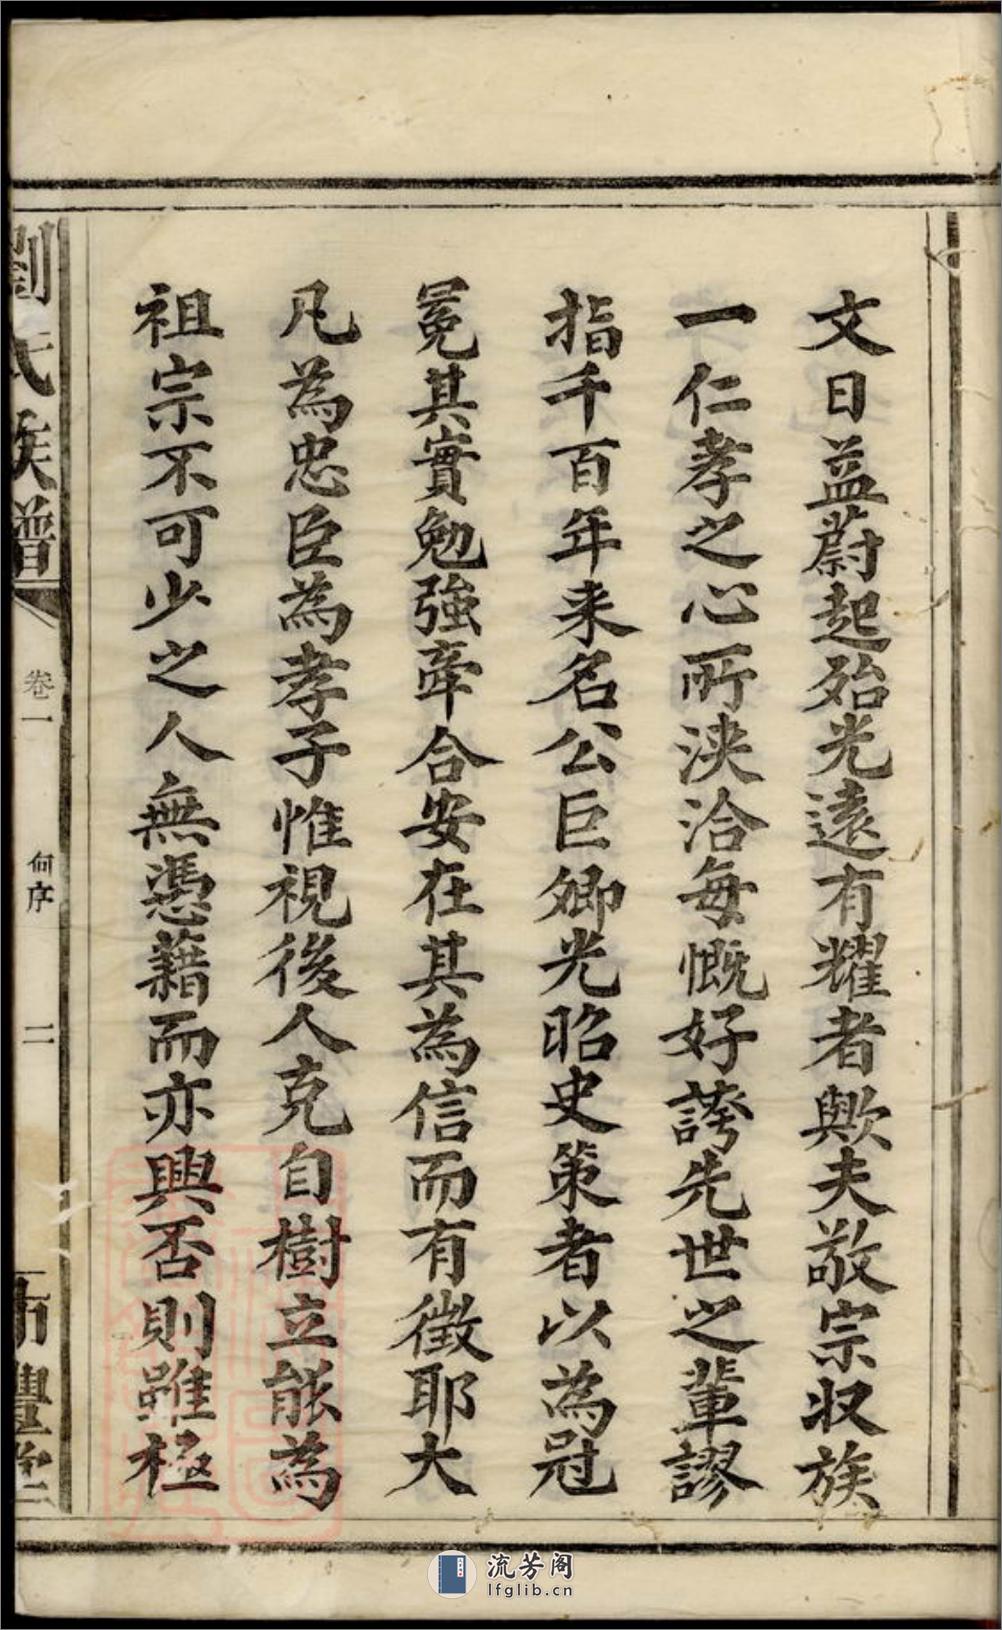 文日益蔚起殆光遠有耀者歟夫敬宗収族
一仁孝之心所浹洽每慨好誇先世之輩謬
指千百年来名公巨卿光昭史策者以為冠
冕其實勉強牽合安在其為信而有徵耶大
凡為忠臣為孝子惟視後人克自樹立能為
祖宗不可少之人無憑藉而亦興否則雖極
劉氏族譜
卷一
何序
二
豐堂
流芳阁
lfglib.cn